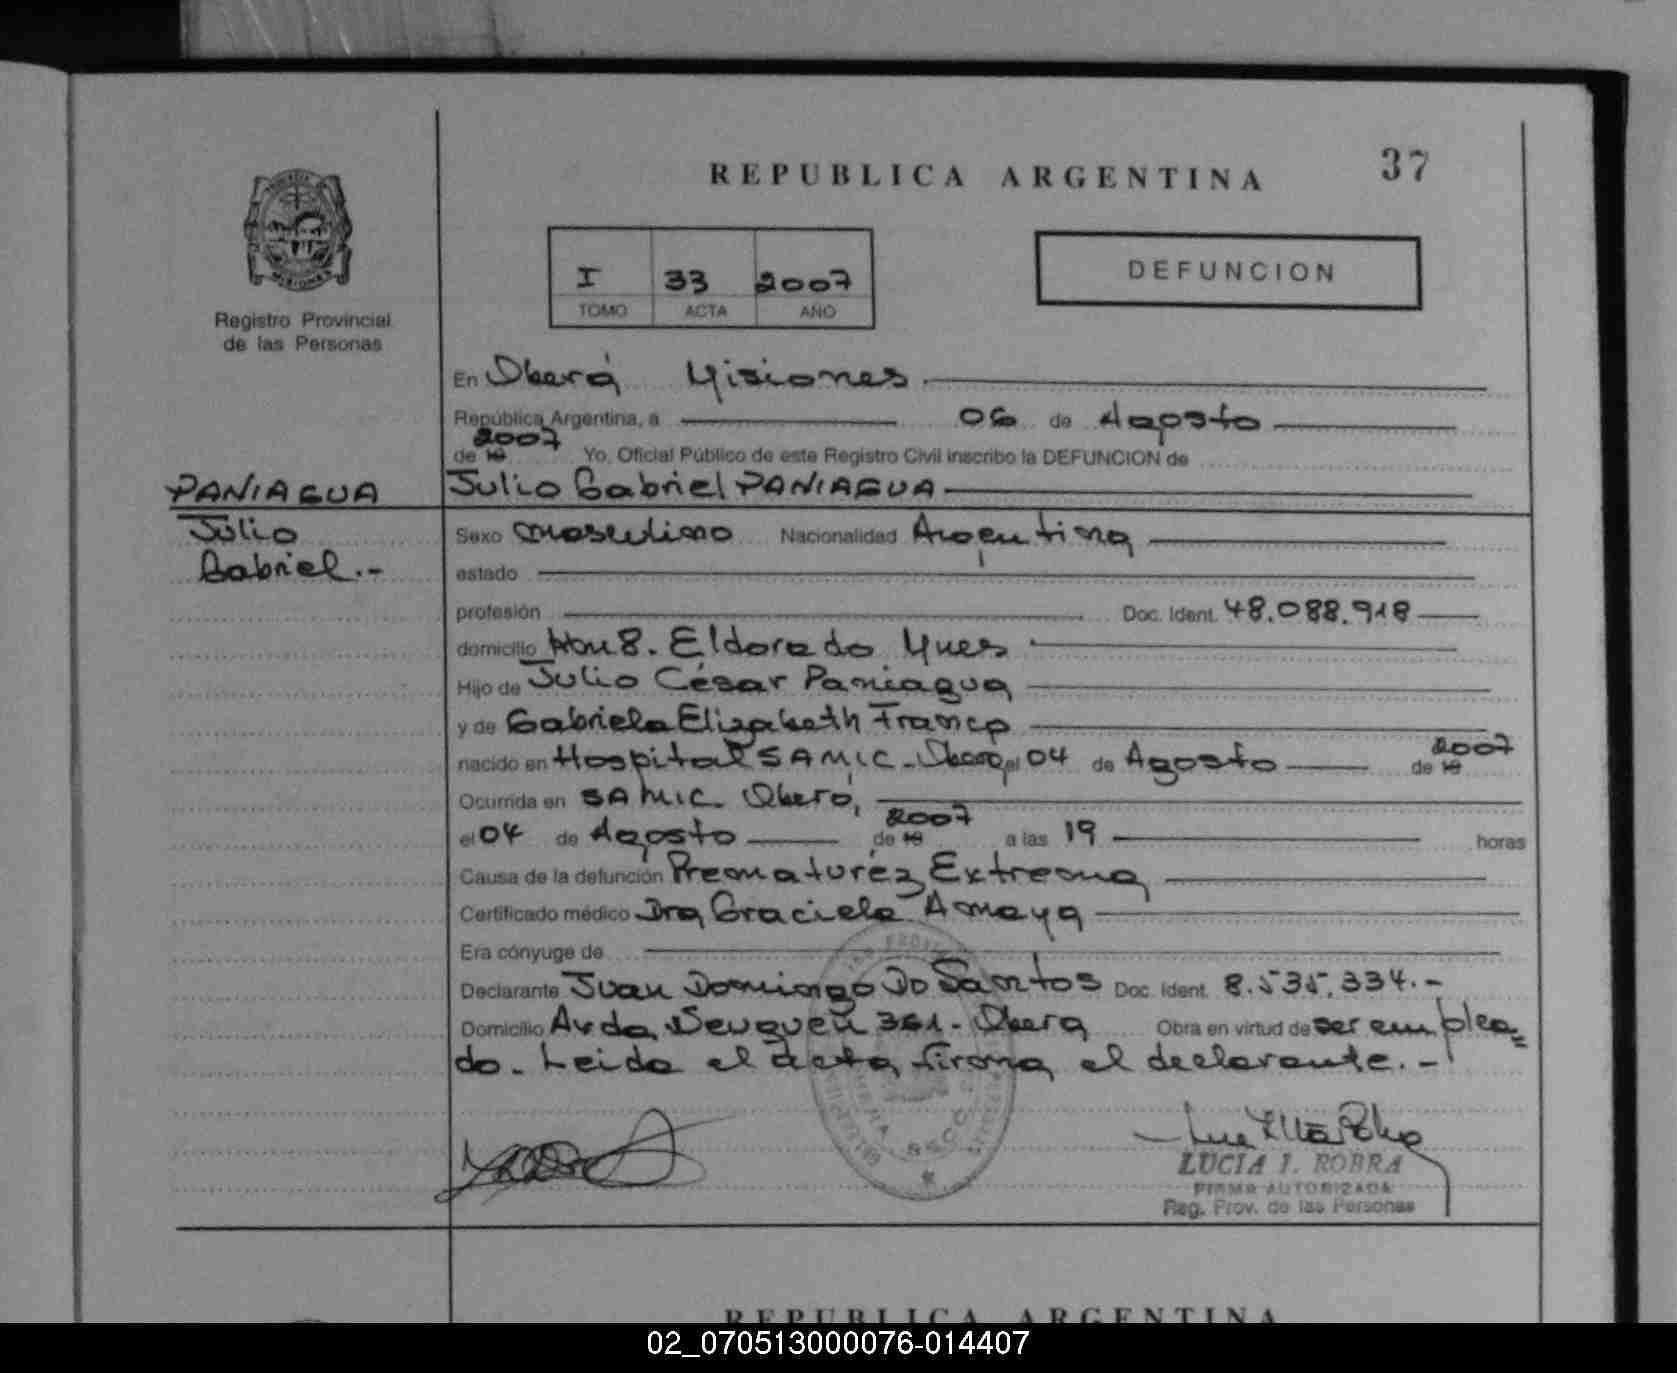 REPUBLICA ARGENTINA
37
MISIONES
Registro Provincial
de las Personas
I 33 2007
TOMO ACTA AÑO
DEFUNCION
En Oberá Misiones
República Argentina, a 06 de Agosto
2007
de 19 Yo, Oficial Público de este Registro Civil inscribo la DEFUNCION de
PANIAGUA
Julio
Gabriel.-
Julio Gabriel PANIAGUA
Sexo masculino Nacionalidad Argentina
estado
profesión Doc. Ident. 48.088.918
domicilio Km 8. Eldorado Mnes
Hijo de Julio César Paniagua
y de Gabriela Elizabeth Franco
nacido en Hospital SAMIC - Oberá el 04 de Agosto de 19 2007
Ocurrida en SAMIC. Oberá,
el 04 de Agosto de 19 2007 a las 19 horas
Causa de la defunción Prematuréz Extrema
Certificado médico Dra Graciela Amaya
Era cónyuge de
Declarante Juan Domingo Do Santos Doc. Ident. 8.535.334.-
Domicilio Avda Neuquén 361 - Oberá Obra en virtud de ser emplea=
do. Leida el acta, firma el declarante.-
LUCIA I. ROBRA
FIRMA AUTORIZADA
Reg. Prov. de las Personas
REPUBLICA ARGENTINA
02_070513000076-014407